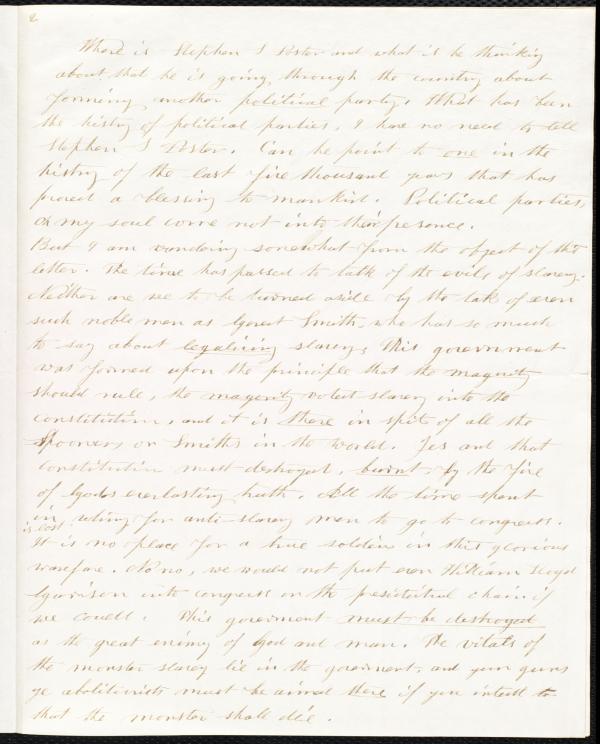 2
Where is Stephen S Foster and what is he thinking
about that he is going through the country about
forming another political party. What has been
the histry of political parties, I have no need to tell
Stephen S Foster. Can he point to one in the
histry of the last five thousand years that has
proved a blessing to mankind. Political parties,
oh my soul come not into their presence.
But I am wandering somewhat from the object of this
letter. The time has passed to talk of the evils of slavery.
Neither are we to be turned aside by the talk of even
such noble men as Gerret Smith, who has so much
to say about legalizing slavery, this government
was formed upon the principle that the magority
should rule, the magerity voted slavery into the
constitution, and it is there in spite of all the
Spooners or Smiths in the world. Yes and that
constitution must destroyed, burnt by the fire
of Gods everlasting truth. All the time spent
in voting for anti-slavery men to go to congress.
is lost
It is no place for a true soldier in this glorious
warefare. No no, we would not put even William Lloyd
Garrison into congress or the presidential chair if
we could. This government must be destroyed
as the great enimy of God and man. The vitals of
the monster slavery lie in the goverment, and your guns
ye abolitionists must be aimed there if you intend to
that the monster shall die.